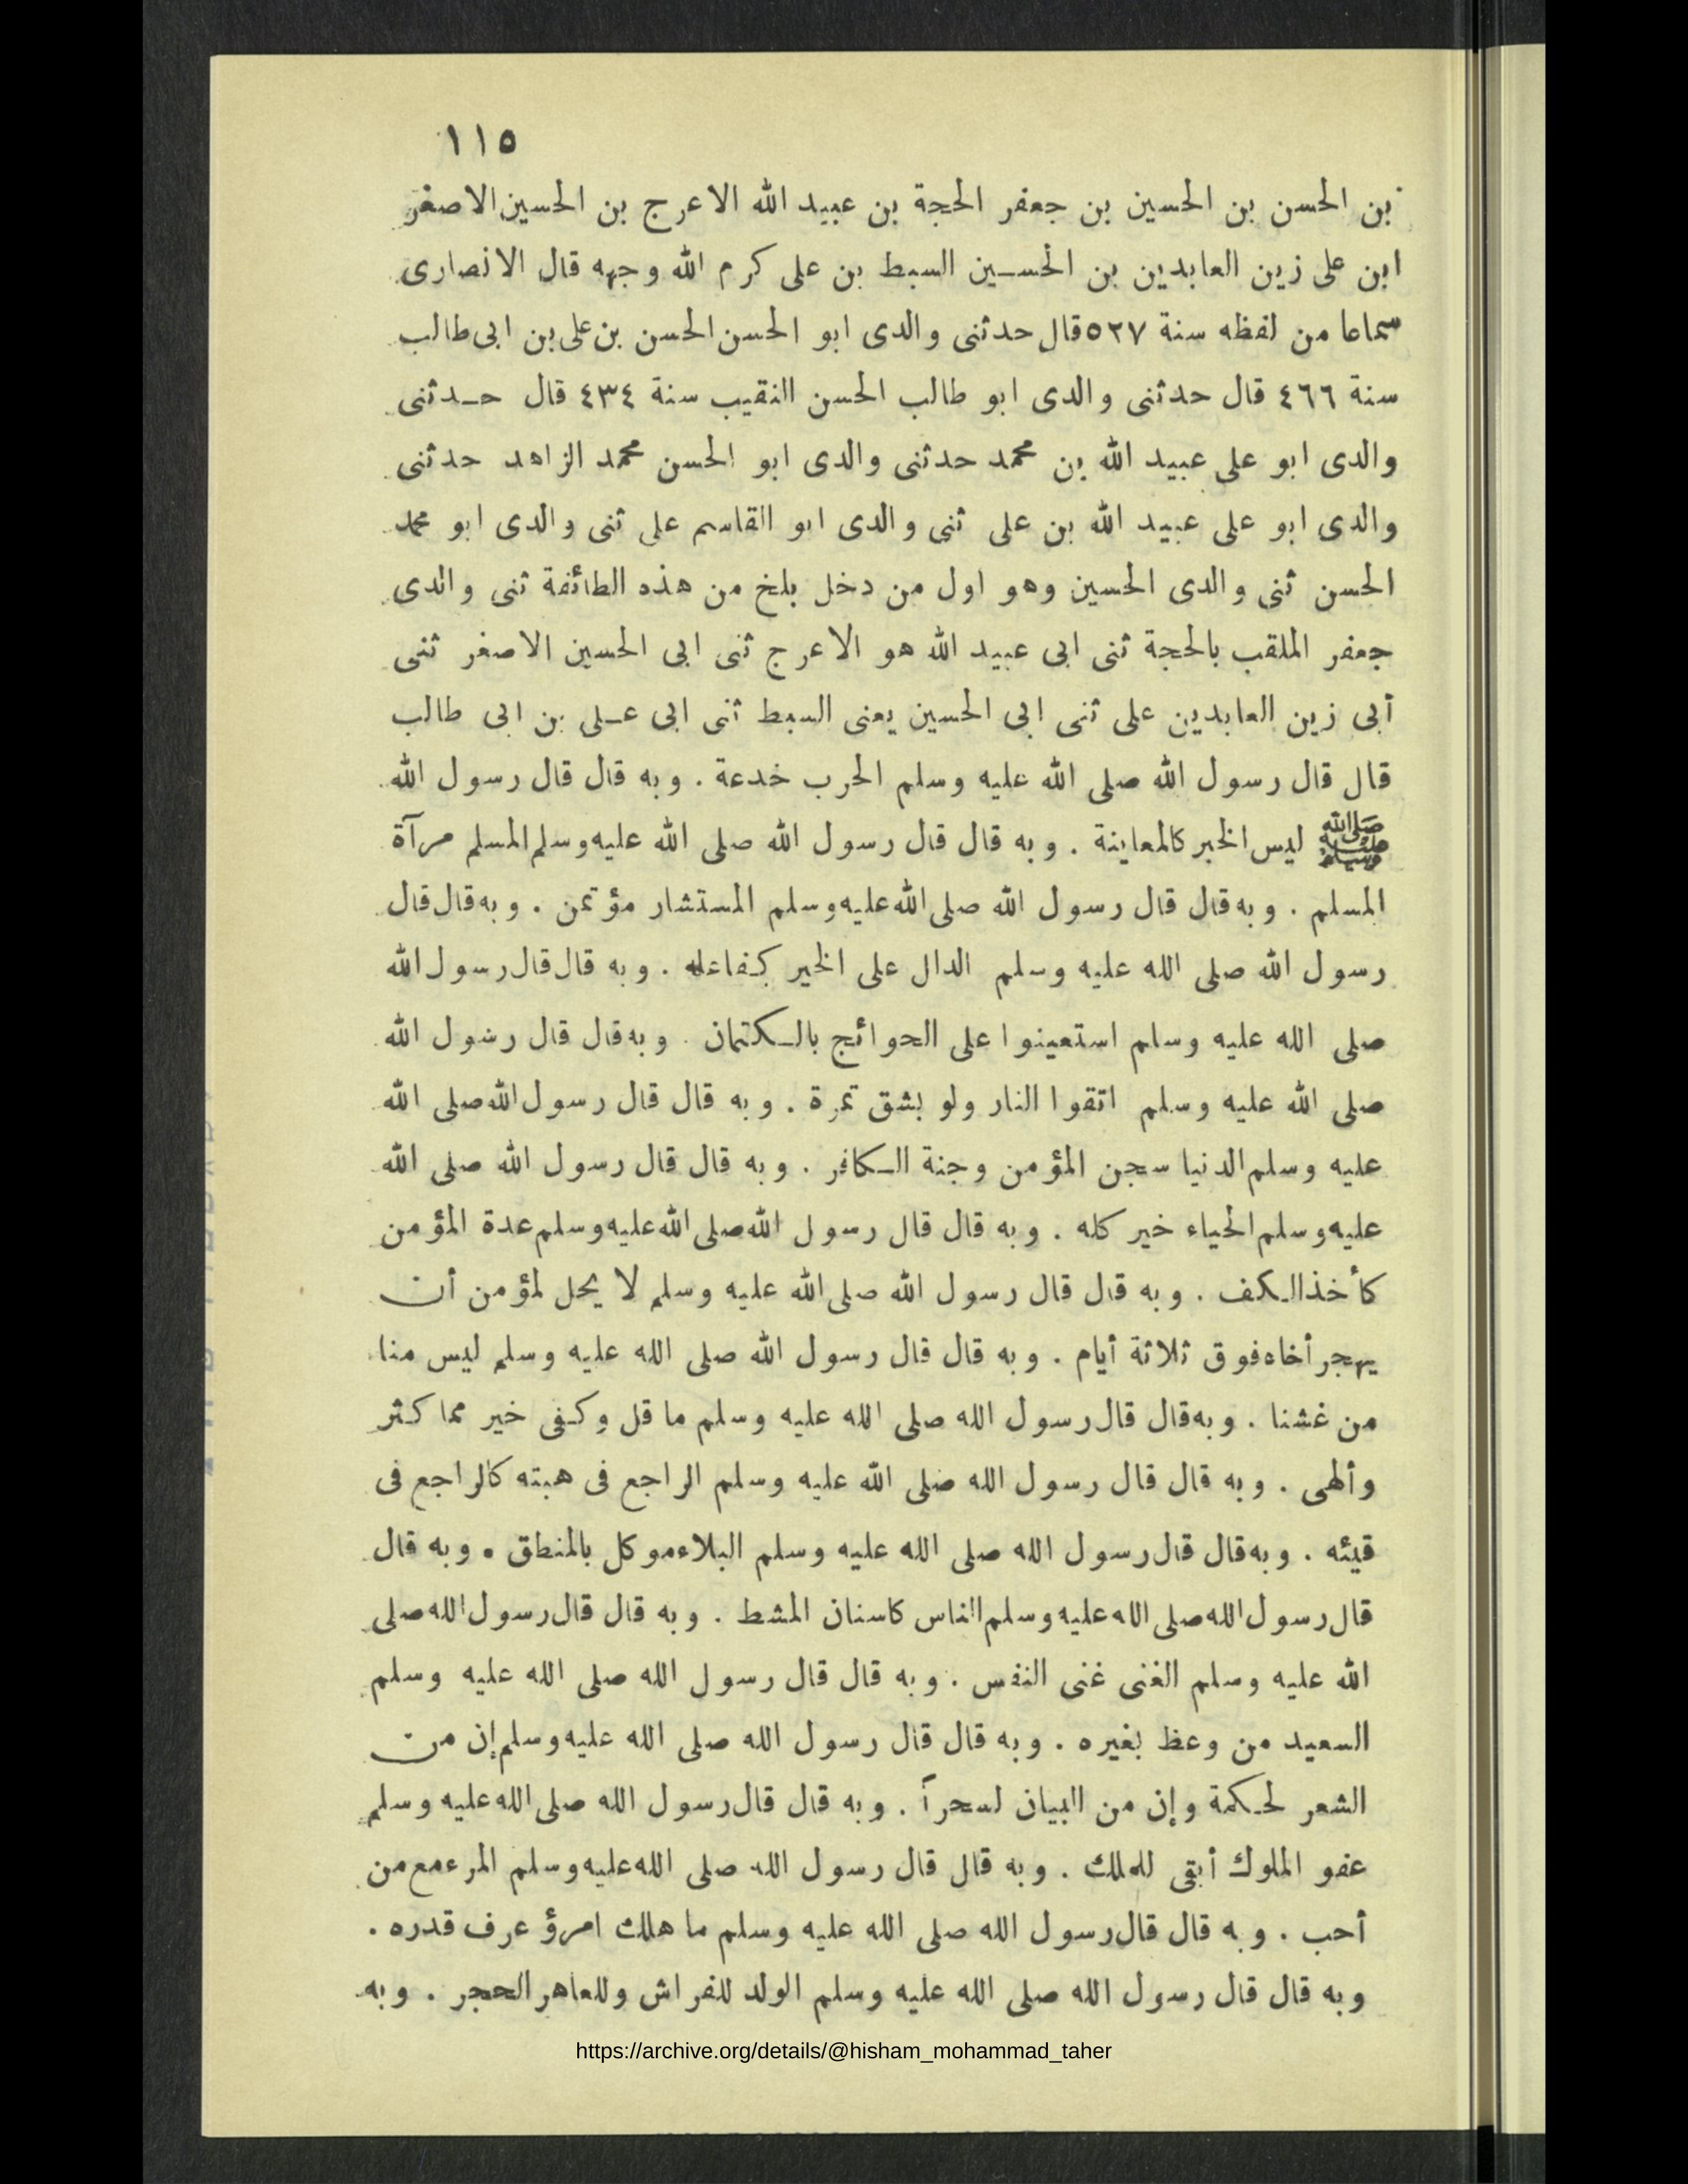 ١١٥
بن الحسن بن الحسين بن جعفر الحجة بن عبيد الله الاعرج بن الحسين الاصغر
ابن على زين العابدين بن الحسـين السبط بن على كرم الله وجهه قال الانصارى
سماعا من لفظه سنة ٥٢٧ قال حدثنى والدى ابو الحسن الحسن بن على بن ابى طالب
سنة ٤٦٦ قال حدثنى والدى ابو طالب الحسن النقيب سنة ٤٣٤ قال حـدثنى
والدى ابو على عبيد الله بن محمد حدثنى والدى ابو الحسن محمد الزاهد حدثنى
والدى ابو على عبيد الله بن على ثنى والدى ابو القاسم على ثنى والدى ابو محمد
الحسن ثنى والدى الحسين وهو اول من دخل بلخ من هذه الطائفة ثنى والدى
جعفر الملقب بالحجة ثنى ابى عبيد الله هو الاعرج ثنى ابى الحسين الاصغر ثنى
أبى زين العابدين على ثنى ابى الحسين يعنى السبط ثنى ابى عـلى بن ابى طالب
قال قال رسول الله صلى الله عليه وسلم الحرب خدعة . وبه قال قال رسول الله
ﷺ ليس الخبر كالمعاينة . وبه قال قال رسول الله صلى الله عليه وسلم المسلم مرآة
المسلم . وبه قال قال رسول الله صلى الله عليه وسلم المستشار مؤتمن . وبه قال قال
رسول الله صلى الله عليه وسلم الدال على الخير كـفاعله . وبه قال قال رسول الله
صلى الله عليه وسلم استعينوا على الحوائج بالـكتمان . وبه قال قال رسول الله
صلى الله عليه وسلم اتقوا النار ولو بشق تمرة . وبه قال قال رسول الله صلى الله
عليه وسلم الدنيا سجن المؤمن وجنة الـكافر . وبه قال قال رسول الله صلى الله
عليه وسلم الحياء خير كله . وبه قال قال رسول الله صلى الله عليه وسلم عدة المؤمن
كأخذ الـكف . وبه قال قال رسول الله صلى الله عليه وسلم لا يحل لمؤمن أن
يهجر أخاه فوق ثلاثة أيام . وبه قال قال رسول الله صلى الله عليه وسلم ليس منا
من غشنا . وبه قال قال رسول الله صلى الله عليه وسلم ما قل وكـفى خير مما كـثر
وألهى . وبه قال قال رسول الله صلى الله عليه وسلم الراجع فى هبته كالراجع فى
قيئه . وبه قال قال رسول الله صلى الله عليه وسلم البلاء موكل بالمنطق . وبه قال
قال رسول الله صلى الله عليه وسلم الناس كاسنان المشط . وبه قال قال رسول الله صلى
الله عليه وسلم الغنى غنى النفس . وبه قال قال رسول الله صلى الله عليه وسلم
السعيد من وعظ بغيره . وبه قال قال رسول الله صلى الله عليه وسلم إن من
الشعر لحـكمة وإن من البيان لسحرآ . وبه قال قال رسول الله صلى الله عليه وسلم
عفو الملوك أبقى للملك . وبه قال قال رسول الله صلى الله عليه وسلم المرء مع من
أحب . وبه قال قال رسول الله صلى الله عليه وسلم ما هلك امرؤ عرف قدره .
وبه قال قال رسول الله صلى الله عليه وسلم الولد للفراش وللعاهر الحجر . وبه
https://archive.org/details/@hisham_mohammad_taher